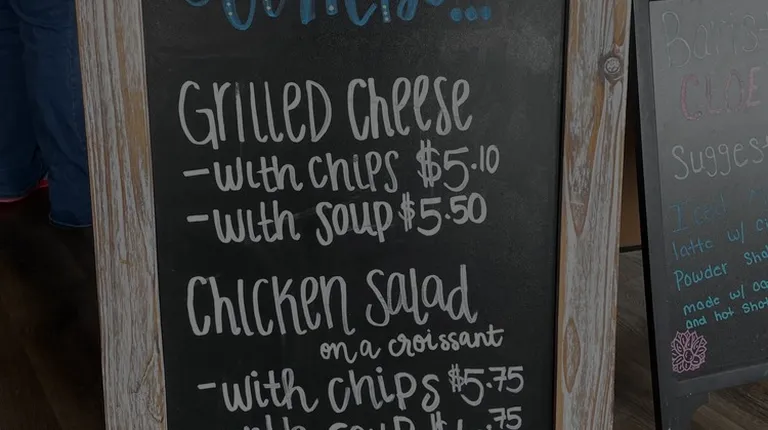 Grilled Cheese
-with chips $5.10
-with soup $5.50
Chicken Salad
on a croissant
-with chips $5.75
soup .75
CLOE
Suggest
latte w/
Powder
made w/
and hot